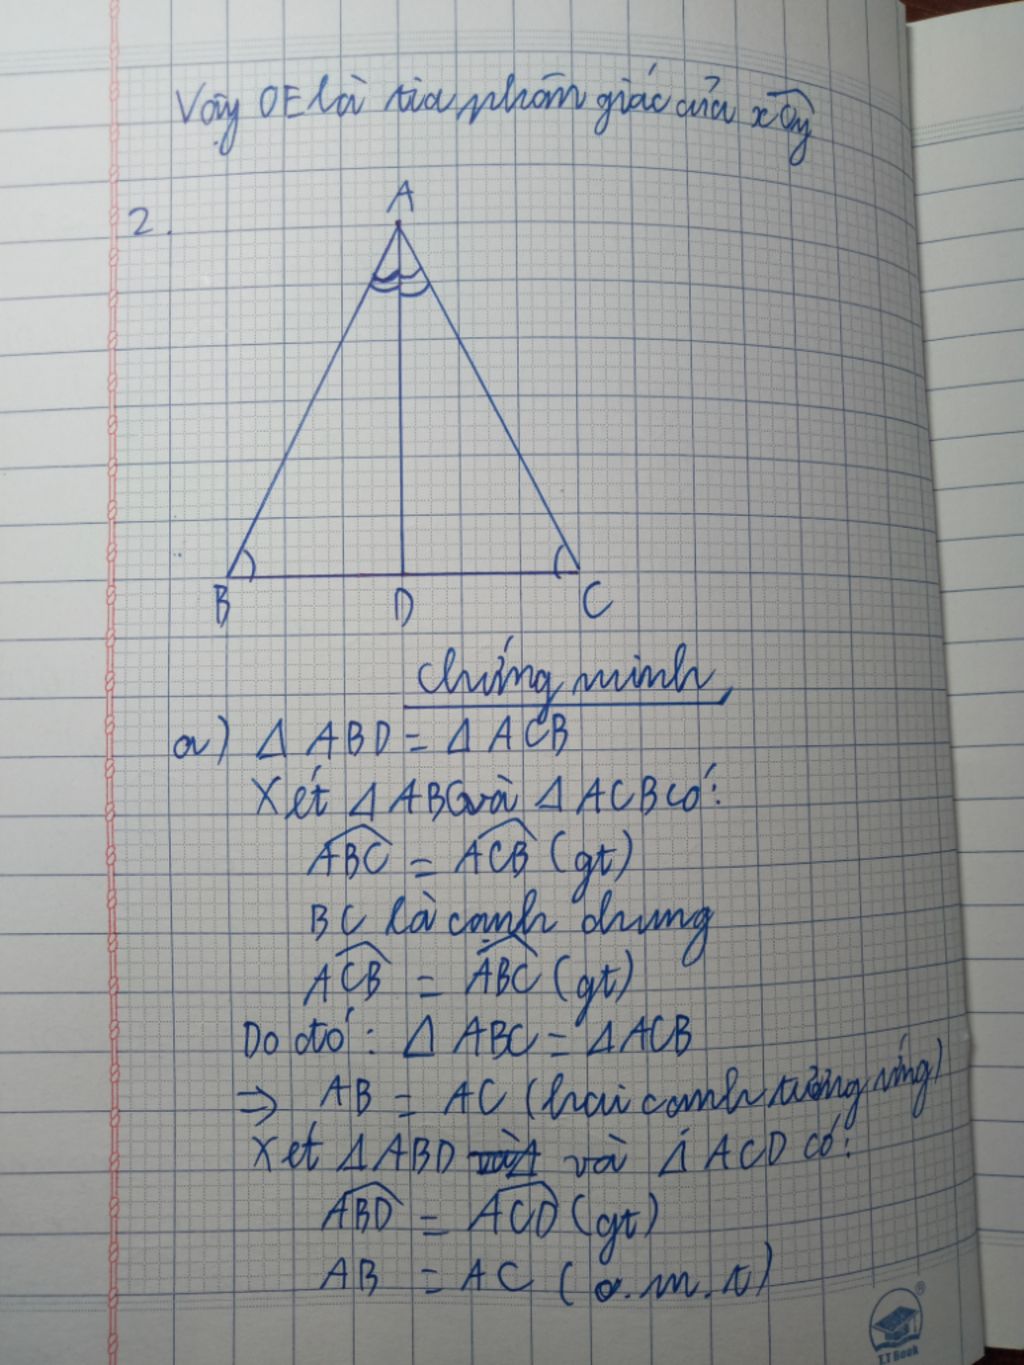 Vậy OE là tia phân giác của xOy
A
2.
B D C
Chứng minh
a) Δ ABD = Δ ACB
Xét Δ ABC và Δ ACB có:
ABC = ACB (gt)
BC là cạnh chung
ACB = ABC (gt)
Do đó: Δ ABC = Δ ACB
⇒ AB = AC (hai cạnh tương ứng)
Xét Δ ABD và Δ ACD có:
ABD = ACD (gt)
AB = AC (c.m.t)
®
T.T Book